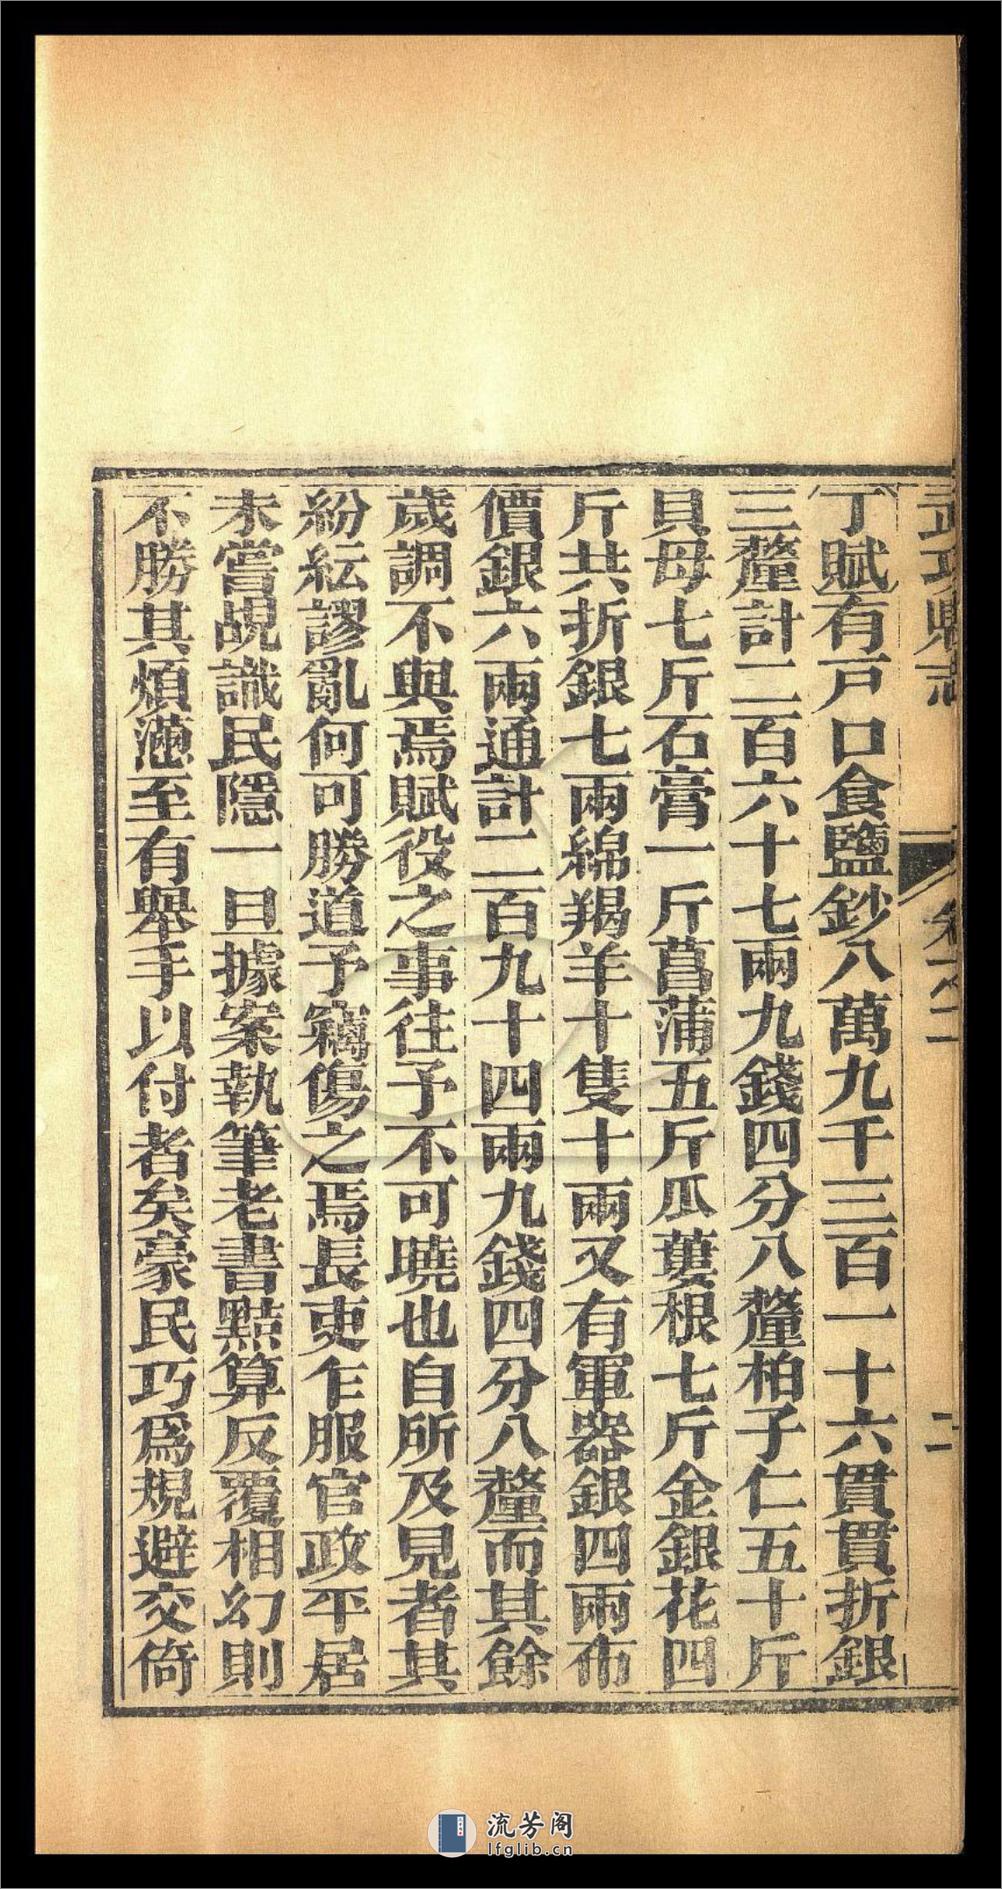 武功縣志 卷之二 二
丁賦有戸口食鹽鈔八萬九千三百一十六貫貫折銀
三釐計二百六十七兩九錢四分八釐柏子仁五十斤
貝母七斤石膏一斤菖蒲五斤瓜蔞根七斤金銀花四
斤共折銀七兩綿羯羊十隻十兩又有軍器銀四兩布
價銀六兩通計二百九十四兩九錢四分八釐而其餘
歲調不與焉賦役之事往予不可曉也自所及見者其
紛紜謬亂何可勝道予竊傷之焉長吏乍服官政平居
未嘗覘識民隱一旦據案執筆老書黠算反覆相幻則
不勝其煩懣至有舉手以付者矣豪民巧爲規避交倚
流芳阁
lfglib.cn